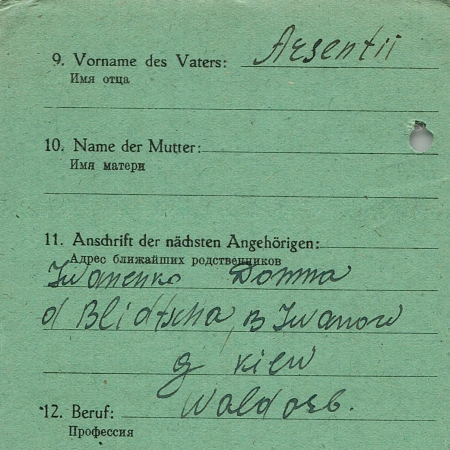 9. Vorname des Vaters: Arsentii
Имя отца
10. Name der Mutter:
Имя матери
11. Anschrift der nächsten Angehörigen:
Адрес ближайших родственников
Iwanenko Domna
d Blidtscha, B Iwanow
g Kiew
12. Beruf: Waldarb.
Профессия